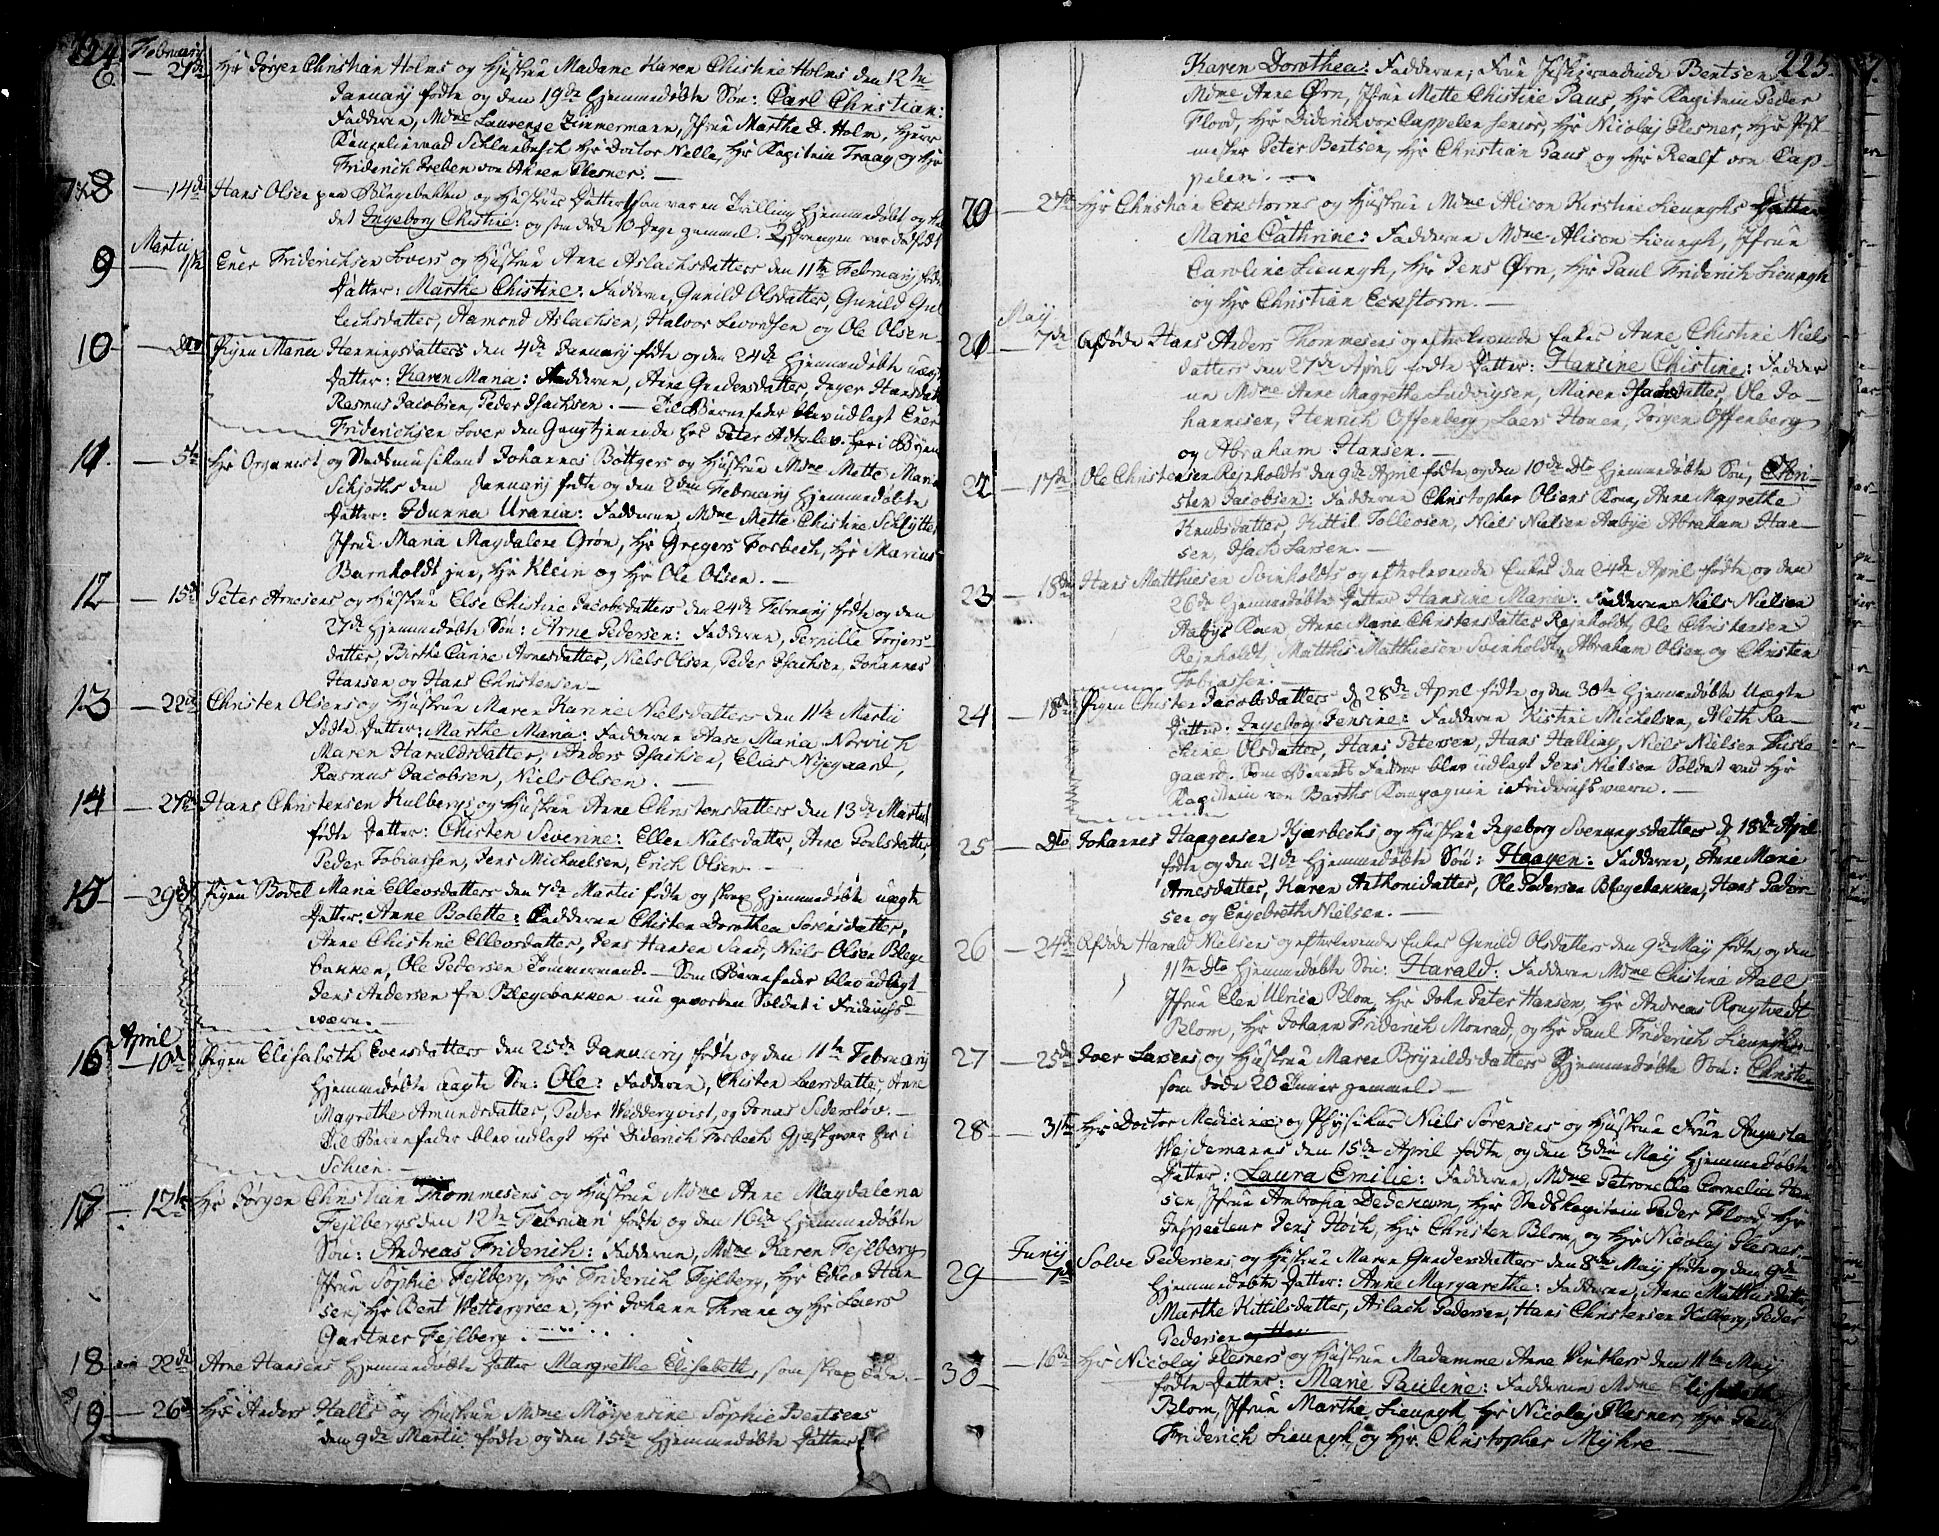 224
February
6. — 21de Hr Jørgen Christian Holms og Hustrue Madame Karen Chistine Holms den 12te
Januarij fødte og den 19de hjemmedøbte Søn: Carl Christian:
Fadderen, Mdme Laurenze Zimmermann, Jfrue Marthe D. Holm, Herr
Kancelieraad Schlanbusch Hr Doctor Nelle, Hr Kapitein Traag og Hr
Friderich Preben von Ahnen Plesner. —
7 & 8 — 14de Hans Olsen paa Blegebakken og Hustrues Datter som var en Tvilling hjemmedøbt og
det Ingeborg Chistine: og som døde 10 Dage gammel. Drengen var dødfødt
Martii
9 — 1te Ener Friderichsen Lovers og Hustrue Anne Aslachsdatters den 11te Februarij fødte
Datter: Marthe Chistine: Fadderen, Gunild Olsdatter, Gunild Gul-
lechsdatter, Aamond Aslachsen, Halvor Levordsen og Ole Olsen
10 — Dto Pigen Maria Henningsdatters den 4de Januarij fødte og den 24de hjemmedøbte uægte
Datter: Karen Maria: Fadderen, Anne Gundersdatter, Inger Hansdatter
Rasmus Jacobsen, Peder Isachsen. — Til Barnefader blev udlagt Ener
Friderichsen Lover den Gang tjenende hos Peter Adtzlev her i Byen
11. — 5te Hr Organist og Stadsmusikant Johannes Bøttgers og Hustrue Mdme Mette Maria
Schjøths den Januarij fødte og den 2den Februarij hjemmedøbte
Datter: Idunna Urania: Fadderen, Mdme Mette Chistine Schlytter
Jfrue Maria Magdalene Grøn, Hr Gregers Forbech, Hr Marius
Barnholdt jun, Hr Klein og Hr Ole Olsen. —
12 — 15de Peter Arnesens og Hustrue Else Chistine Jacobsdatters den 24de Februarij fødte og den
27de hjemmedøbte Søn: Arne Pedersen: Fadderen, Pernille Torjers-
datter, Birthe Carine Arnesdatter, Niels Olsen, Peder Isachsen, Johannes
Hansen og Hans Christensen —
13 — 22de Christen Olsens og Hustrue Maren Karine Nielsdatters den 11te Martii
fødte Datter: Marthe Maria: Fadderen Aase Maria Norvich
Maren Haraldsdatter, Anders Isachsen, Elias Nyegaard,
Rasmus Jacobsen, Niels Olsen. —
14 — 27de Hans Christensen Kulbergs og Hustrue Anne Christensdatters den 13de Martii
fødte Datter: Chisten Severine: Ellen Nielsdatter, Anne Poulsdatter,
Peder Tobiassen, Jens Michaelsen, Erich Olsen. —
15 — 29de Pigen Bodel Maria Ellevsdatters den 7de Martii fødte og strax hjemmedøbte uægte
Datter: Anne Bolette: Fadderen Chisten Dorothea Sørensdatter,
Anne Chistine Ellevsdatter, Jens Hansen Sand, Niels Olsen Blege
bakken, Ole Pedersen Tømmermand — Som Barnefader blev udlagt
Jens Andersen fra Blegebakken nu geworben Soldat i Friderichs-
værn. —
April
16 — 10de Pigen Elisabeth Evensdatters den 25de Januarij fødte og den 11te Februarij
hjemmedøbte uægte Søn: Ole: Fadderen, Chisten Laersdatter, Anne
Magrethe Amundsdatter, Peder Wedderqvist, og Jonas Sedersløv. —
Til Barnefader blev udlagt Hr Diderich Forbech Gjestgiver her i
Schien. —
17 — 12te Hr Jørgen Christian Thommesens og Hustrue Mdme Anne Magdalena
Fejlbergs den 12te Februari fødte og den 16de hjemmedøbte
Søn: Andreas Friderich: Fadderen, Mdme Karen Fejlberg
Jfrue Sophie Fejlberg, Hr Friderich Fejlberg, Hr Edlev Han-
sen, Hr Bent Wettergreen, Hr Johann Thrane og Hr Laers
Gartner Fejlberg. —
18 — 22de Arne Hansens hjemmedøbte Datter Margrethe Elisabeth, som strax døde. —
19 — 26de Hr Anders Halls og Hustrue Mdme Mogensine Sophie Bentsens
den 9de Martii fødte og den 15de hjemmedøbte Datter
225.
Karen Dorothea: Fadderen, Frue Justitsraadinde Bentsen
Mdme Anne Ørn, Jfrue Mette Chistine Paus, Hr Kapitein Peder
Flood, Hr Diderich von Cappelen senior, Hr Nicolaj Plesner, Hr Post
mester Peter Bentsen, Hr Christian Paus og Hr Realf von Cap-
pelen. —
20 — 27de Hr Christian Eckstorms og Hustrue Mdme Alison Kirstine Lieunghs Datter
Marie Cathrine: Fadderen Mdme Alison Lieungh, Jfrue
Caroline Lieungh, Hr Jens Ørn, Hr Paul Friderich Lieungh
og Hr Christian Eckstorm. —
Maij
21 — 7de Afdøde Hans Anders Thommesens og efterlevende Enkes Anne Chistine Niels
datters den 27de April fødte Datter: Hansine Chistine: Fadder
en Mdme Anne Magrethe Ludvigsen, Maren Isachsdatter, Ole Jo-
hannesen, Henrich Offenberg, Laers Honen, Jørgen Offenberg
og Abraham Hansen. —
22 — 17de Ole Christensen Rejnholdts den 9de April fødte og den 10de Dto hjemmedøbte Søn, Chri-
sten Jacobsen: Fadderen Christopher Olsens Kone, Anne Magrethe
Knudsdatter, Kittil Tollevsen, Niels Nielsen Aabye Abraham Han-
sen, Isach Larsen. —
23 — 18de Hans Matthiesen Svinholdts og efterlevende Enkes den 24de April fødte og den
26de hjemmedøbte Datter Hansine Maria: Fadderen Niels Nielsen
Aabyes Kone, Anne Marie Christensdatter Rejnholdt, Ole Christensen
Rejnholdt, Matthis Matthiesen Svinholdt, Abraham Olsen og Christen
Tobiassen. —
24 — 18de Pigen Chisten Jacobsdatters d 28de April fødte og den 30te hjemmedøbte Uægte
Datter: Ingeborg Jensine: Fadderen Kistine Michelsen, Aleth Ka-
thrine Olsdatter, Hans Petersen, Hans Halling, Niels Nielsen Fiske
gaard. Som Barnets Fader blev udlagt Jens Nielsen Soldat ved Hr
Kapitein von Barths Kompagnie i Friderichsværn. —
25 — Dto Johannes Haagensen Kjærbechs og Hustrue Ingeborg Svenungsdatters d 18de April
fødte og den 21de hjemmedøbte Søn: Haagen: Fadderen, Anne Marie
Arnesdatter, Karen Anthonidatter, Ole Pedersen Blegebakken, Hans Peder-
sen og Engebreth Nielsen. —
26 — 24de Afdøde Harald Nielsens og efterlevende Enkes Gunild Olsdatters den 9de Maij fødte og den
11te Dto hjemmedøbte Søn: Harald: Fadderen Mdme Chistine Hall
Jfrue Elen Ulrica Blom, Hr John Peter Hansen, Hr Andreas Rougtvedt
Blom, Hr Johann Friderich Monrad, og Hr Paul Friderich Lieungh —
27 — 25de Iver Larsens og Hustrue Maren Brynildsdatters hjemmedøbte Søn: Christen
som døde 20 Timer gammel —
28 — 31te Hr Doctor Medicinæ og Physikus Niels Sørensens og Hustrue Frue Augusta
Weidemanns den 15de April fødte og den 3die Maij hjemmedøbte
Datter: Laura Emilie: Fadderen, Mdme Petronella Cornelia Han
sen Jfrue Ambrosia Dedekam, Hr Stadskapitein Peder Flood, Hr
Inspecteur Jens Høih, Hr Christen Blom, og Hr Nicolaj Plesner —
Junij
29 — 7de Solve Pedersens og Hustrue Maren Gundersdatters den 8de Maij fødte og den 9de
hjemmedøbte Datter: Anne Margarethe: Fadderen, Anne Matthisdatter
Marthe Kittilsdatter, Aslach Pedersen, Hans Christensen Kulberg, Peder
Pedersen
30 — 16de Hr Nicolaj Plesners og Hustrue Madamme Anne Vinthers den 11te Maij
fødte Datter: Marie Pauline: Fadderen Mdme Elisabeth
Blom, Jfrue Marthe Lieungh, Hr Nicolaj Plesner, Hr Paul
Friderich Lieungh, og Hr. Christopher Myhre —